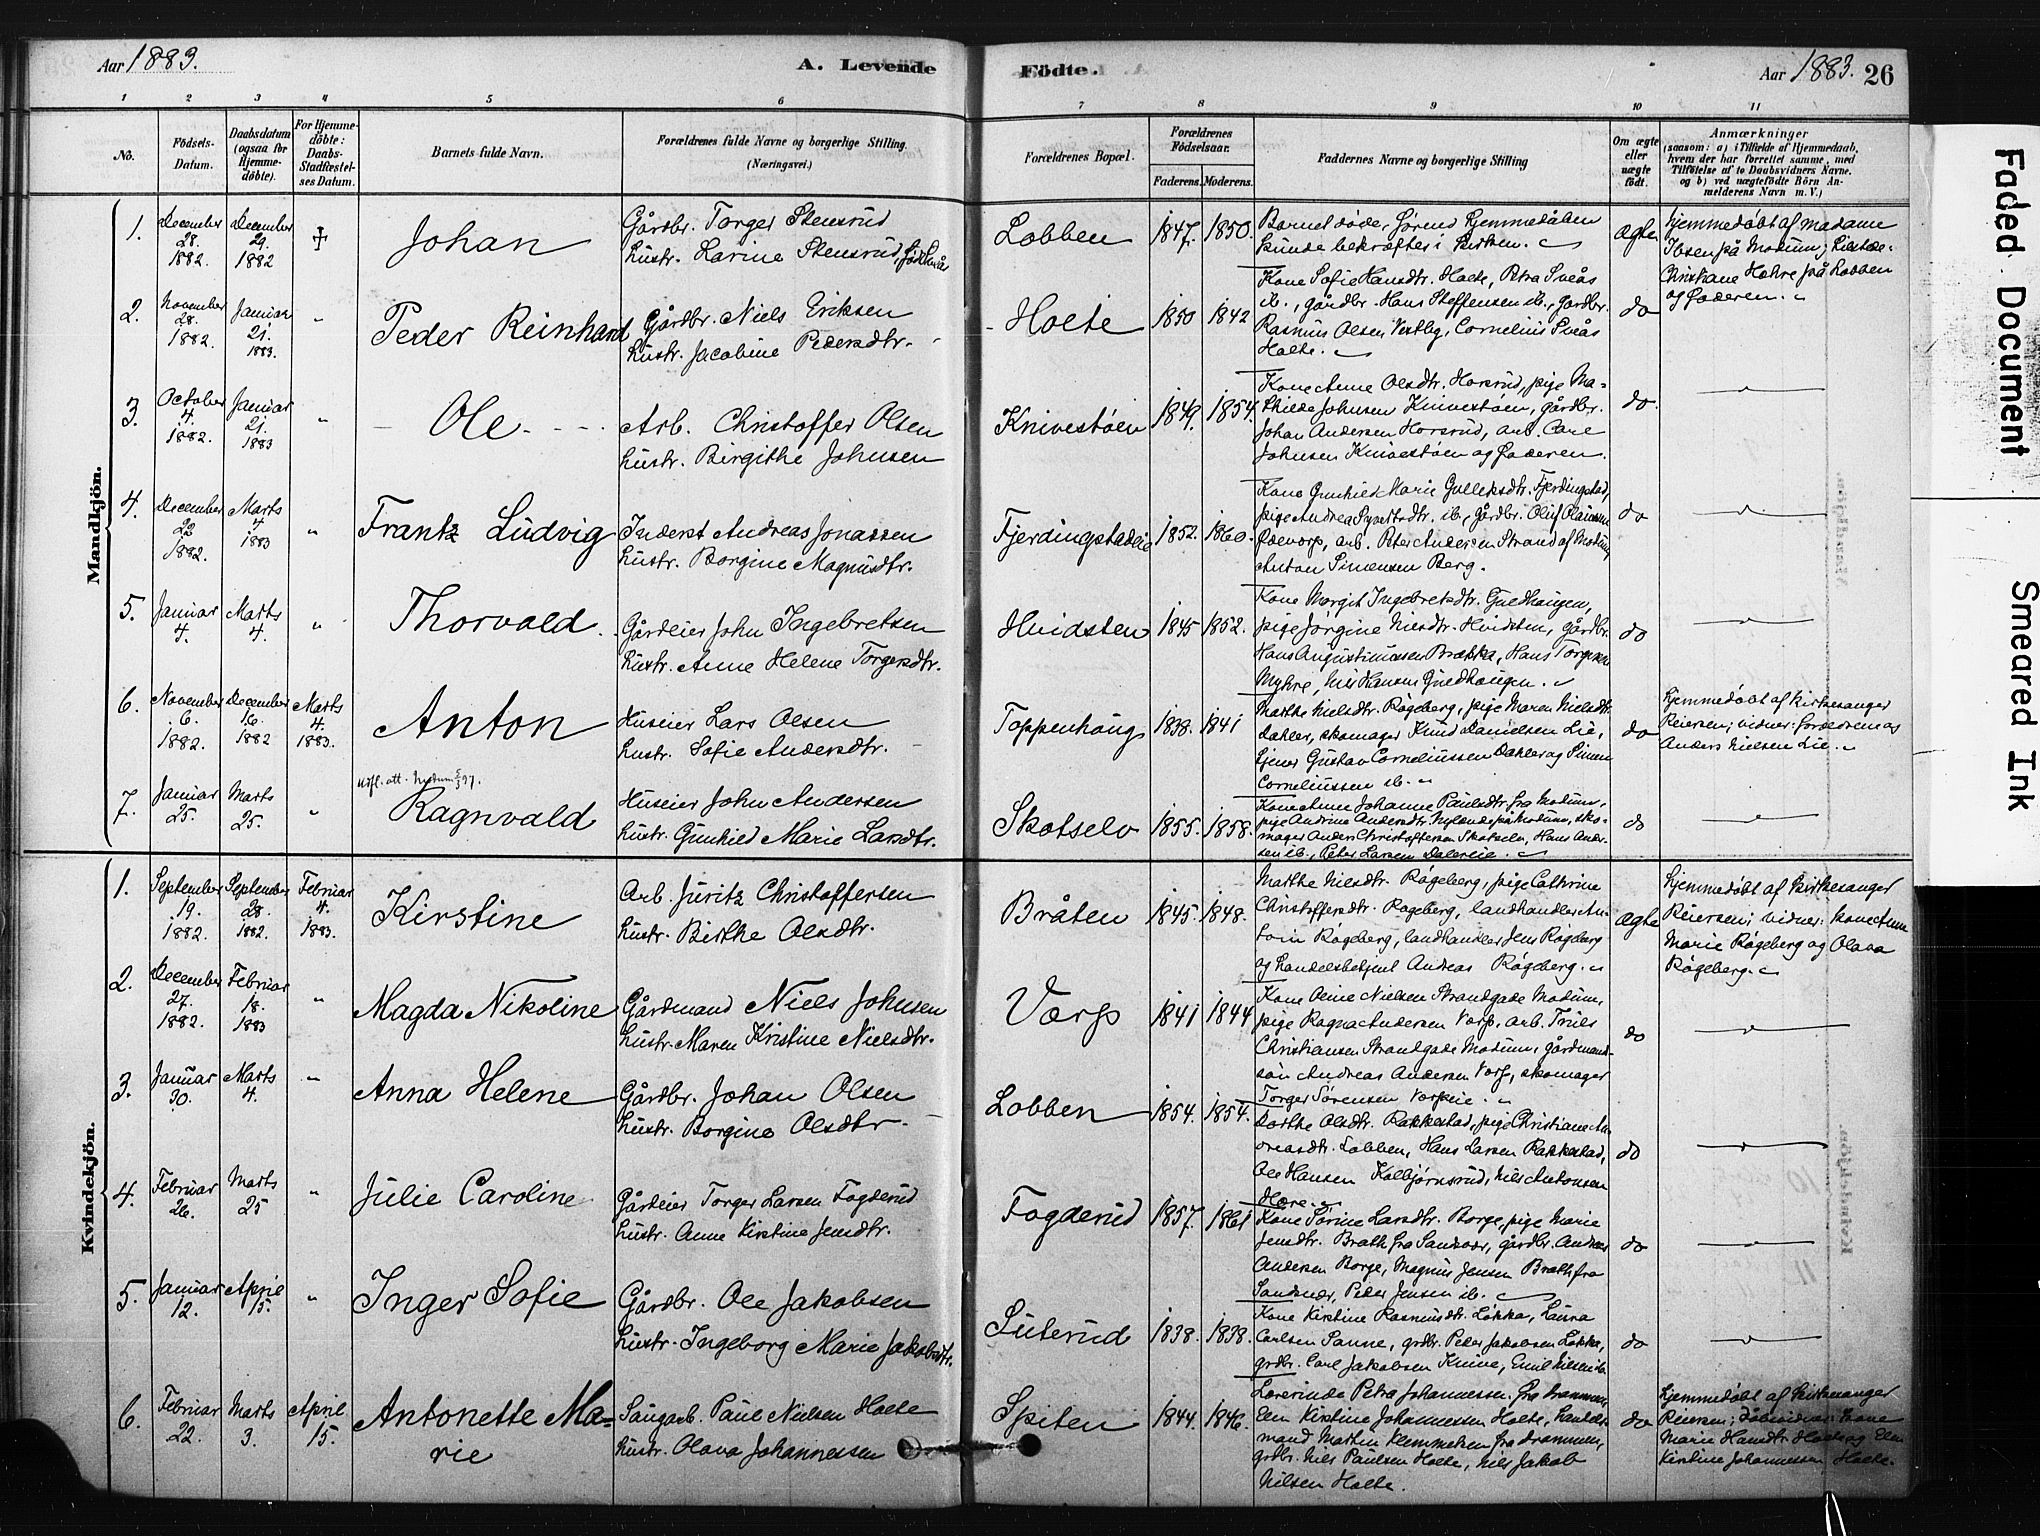 Aar 1883.
A. Levende Födte.
Aar 1883. 26
1 2 3 4 5 6 7 8 9 10 11
No.
Födsels-Datum.
Daabsdatum (ogsaa for Hjemme-döbte).
For Hjemme-döbte: Daabs-Stadfæstel-ses Datum.
Barnets fulde Navn.
Forældrenes fulde Navne og borgerlige Stilling.
(Næringsvei.)
Forældrenes Bopæl.
Forældrenes Födselsaar.
Faderens. Moderens.
Faddernes Navne og borgerlige Stilling
Om ægte eller uægte födt.
Anmærkninger
(saasom: a) i Tilfælde af Hjemmedaab, hvem der har forrettet samme, med Tilföielse af to Daabsvidners Navne. og b) ved uægtefödte Börn An-melderens Navn m. V.)
Mandkjön.
1. December 28. 1882. December 29. 1882 Johan
Gårdbr. Torger Stensrud
hustr. Larine Stensrud,
Lobben 1847. 1850.
Barnet døde, førend hjemmedåben
kunde bekræftes i kirken.
ægte
hjemmedøbt af madame
Ibsen på Modum;
Christiane Hohre på Lobben
og faderen.
2. November 28. 1882. Januar 21. 1883. " Peder Reinhard
Gårdbr. Niels Eriksen
hustr. Jacobine Pedersdtr.
Holte 1850 1842
Kone Sofie Hansdtr. Holte, Petra Sveås
ib., gårdbr. Hans Steffensen ib., gårdbr.
Rasmus Olsen Vestby, Cornelius Sveås
Holte.
do
3. October 4. 1882. Januar 21. 1883 " Ole
Arb. Christoffer Olsen
hustr. Birgithe Johnsen
Knivestøen 1849. 1854.
Kone Anne Olsdtr. Horsrud, pige Ma-
thilde Johnsen Knivestøen, gårdbr.
Johan Andersen Horsrud, arb. Carl
Johnsen Knivestøen og faderen.
do.
4. December 22 1882. Marts 4 1883 " Frantz Ludvig
Inderst Andreas Jonassen
hustr. Borgine Magnusdtr.
1852. 1860.
Kone Gunhild Marie Gulleksdtr. Fjerdingstad,
pige Andrea ib., gårdbr. Oluf
arb. Peter Andersen Strand af Modum,
Anton Simensen Berg.
do
5. Januar 4. Marts 4. " Thorvald
Gårdeier John Ingebretsen
hustr. Anne Helene Torgersdtr.
Hvidsten 1845 1852.
Kone Margit Ingebretsdtr. Guldhaugen,
pige Jørgine Nilsdtr. Hvidsten, gårdbr.
Hans Augustinussen Brække, Hans Torgersen
Myhre, Nils Hansen Guldhaugen.
do
6. November 6. 1882. December 16. 1882 Marts 4 1883. Anton
Huseier Lars Olsen
hustr. Sofie Andersdtr.
Toppenhaug 1838. 1841
Marthe Nielsdtr. Røgeberg, pige Maren Nielsdtr.
Dahler, skomager Knud Danielsen Lie,
tjener Gustav Corneliussen Dahler og Simen
Corneliussen ib.
do
hjemmedøbt af kirkesanger
Reiersen; vidner: forældrene og
Anders Nielsen Lie.
7. Januar 25. Marts 25. " Ragnvald
Huseier John Andersen
hustr. Gunhild Marie Larsdtr.
Skotselv 1855. 1858.
Kone Anne Johanne Paulsdtr. fra Modum,
pige Andrine Andersdtr. Nylænde på Modum, sko-
mager Anders Christoffersen Skotselv, Hans Ander-
sen ib., Peter Larsen
do
Kvindekjön.
1. September 19. 1882. September 28. 1882. Februar 4. 1883. Kirstine
Arb. Juritz Christoffersen
hustr. Birthe Olsdtr.
Bråten 1845. 1848.
Marthe Nilsdtr. Røgeberg, pige Cathrine
Christoffersdtr. Røgeberg, landhandler An-
ton Røgeberg, landhandler Jens Røgeberg
og handelsbetjent Andreas Røgeberg.
ægte
hjemmedøbt af kirkesanger
Reiersen; vidner: kone Anne
Marie Røgeberg og Olava
Røgeberg.
2. December 27. 1882. Februar 18. 1883 " Magda Nikoline
Gårdmand Niels Johnsen
hustr. Maren Kristine Nielsdtr.
Vorp 1841 1844
Kone Oline Nielsen Strandgade Modum,
pige Ragna Andersen Vorp, arb. Truls
Christiansen Strandgade Modum, gårdmand-
søn Andreas Andersen Vorp, skomager
Torger Sørensen Vorpeie.
do
3. Januar 30. Marts 4. " Anna Helene
Gårdbr. Johan Olsen
hustr. Borgine Olsdtr.
Lobben 1854. 1854.
Dorthe Olsdtr. Rakkestad, pige Christiane An-
dreasdtr. Lobben, Hans Larsen Rakkestad,
Ole Hansen Kolbjørnsrud, Nils Antonsen
Hære.
do
4. Februar 26. Marts 25 " Julie Caroline
Gårdeier Torger Larsen Fogderud
hustr. Anne Kirstine Jensdtr.
Fogderud 1857. 1861
Kone Sørine Larsdtr. Borge, pige Marie
Jensdtr. Brath fra Sandsvær, gårdbr. Andreas
Andersen Borge, Magnus Jensen Brath fra
Sandsvær, Peder Jensen ib.
do
5. Januar 12. April 15. " Inger Sofie
Gårdbr. Ole Jakobsen
hustr. Ingeborg Marie Jakobsdtr.
Suterud 1838. 1838.
Kone Kirstine Rasmusdtr. Løkka, Laura
Carlsen Sanne, grdbr. Peder Jakobsen Løkka,
grdbr. Carl Jakobsen Emil Nilsen ib.
do
6. Februar 22. Marts 3. April 15. Antonette Ma-
rie
Sagarb. Paul Nielsen Holte
hustr. Olava Johannessen
Spiten 1844. 1846.
Lærerinde Petra Johannessen fra Drammen,
Elen Kirstine Johannessen Holte, handels-
mand Martin Klemmetsen fra Drammen,
grdbr. Nils Paulsen Holte, Nils Jakob
Nilsen Holte.
do
hjemmedøbt af kirkesanger
Reiersen; dåbsvidner: kone
Marie Hansdtr. Holte og Elen
Kirstine Johannessen Holte.
Faded Document
Smeared Ink